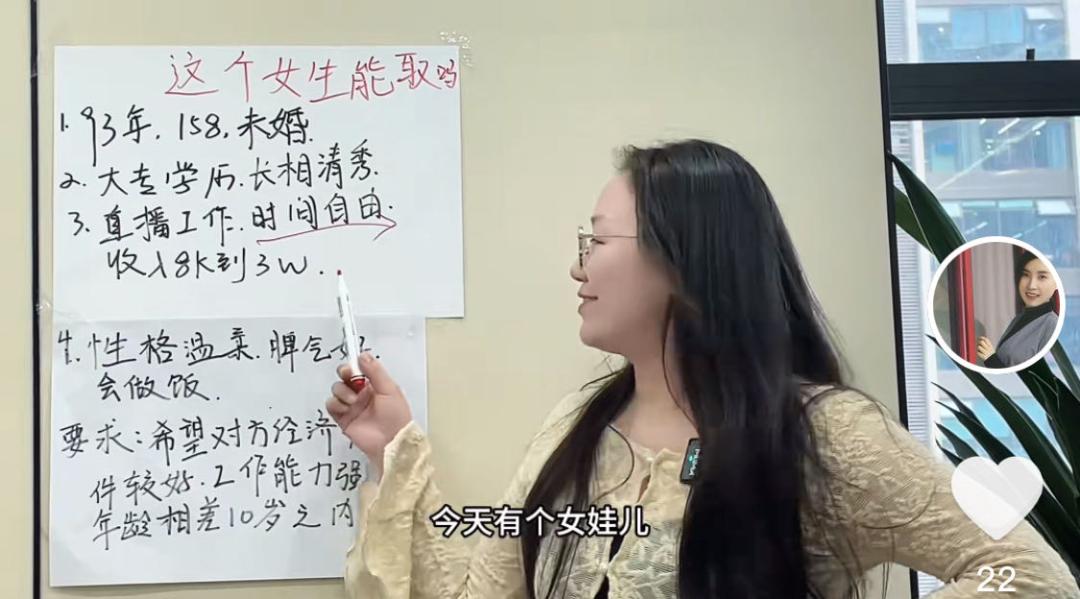 这个女生能取吗
1. 93年. 158. 未婚.
2. 大专学历. 长相清秀.
3. 直播工作. 时间自由.
收入8K到3W.
4. 性格温柔. 脾气好.
会做饭.
要求：希望对方经济
件较好. 工作能力强
年龄相差10岁之内
今天有个女娃儿
22